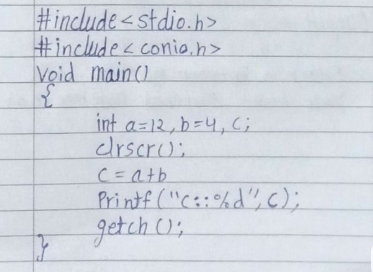 #include<stdio.h>
#include<conio.h>
void main()
{
int a=12,b=4,c;
clrscr();
c=a+b
Printf("c::%d",c);
getch();
}